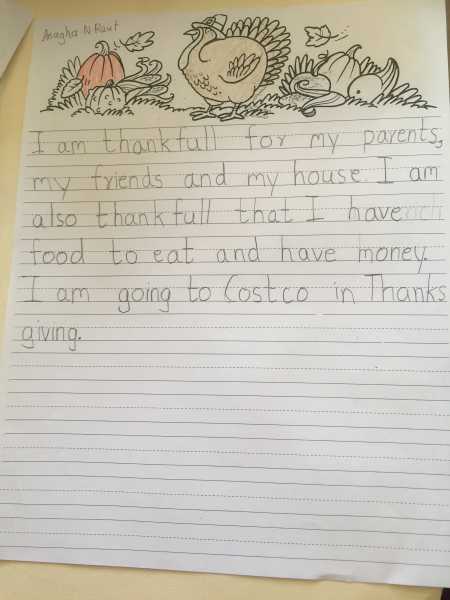 Anagha N Raut
I am thankfull for my parents,
my friends and my house. I am
also thankfull that I have
food to eat and have money.
I am going to Costco in Thanks
giving.